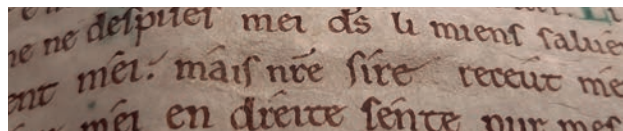 ne ne despitei mei ds li miens salue
ent mei. mais nre sire receut me
mei en dreite sente pur mes